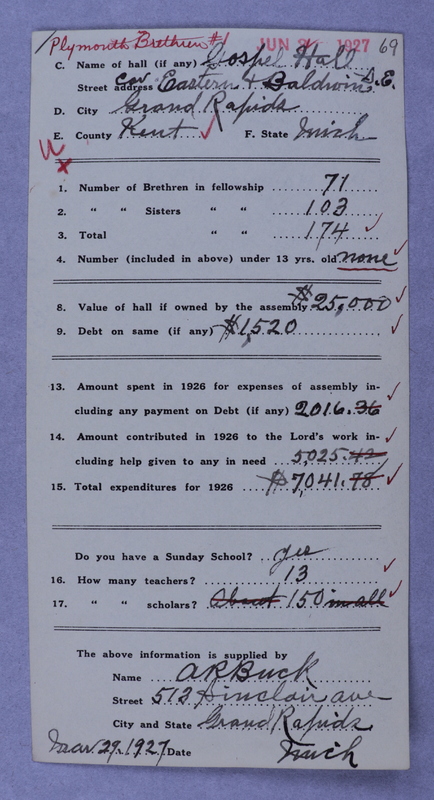 Plymouth Brethren #1 JUN 1927 69
C. Name of hall (if any) Gospel Hall
Street address Cor Eastern & Baldwin S.E.
D. City Grand Rapids
E. County Kent F. State Mich
1. Number of Brethren in fellowship 71
2. " " Sisters " " 103
3. Total " " 174
4. Number (included in above) under 13 yrs. old none
8. Value of hall if owned by the assembly $25,000
9. Debt on same (if any) $1,520
13. Amount spent in 1926 for expenses of assembly in-
cluding any payment on Debt (if any) 2016.36
14. Amount contributed in 1926 to the Lord's work in-
cluding help given to any in need 5,025.42
15. Total expenditures for 1926 $7,041.78
Do you have a Sunday School? yes
16. How many teachers? 13
17. " " scholars? About 150 in all
The above information is supplied by
Name A R Buck
Street 512 Sinclair ave
City and State Grand Rapids
Mar 29. 1927 Date Mich